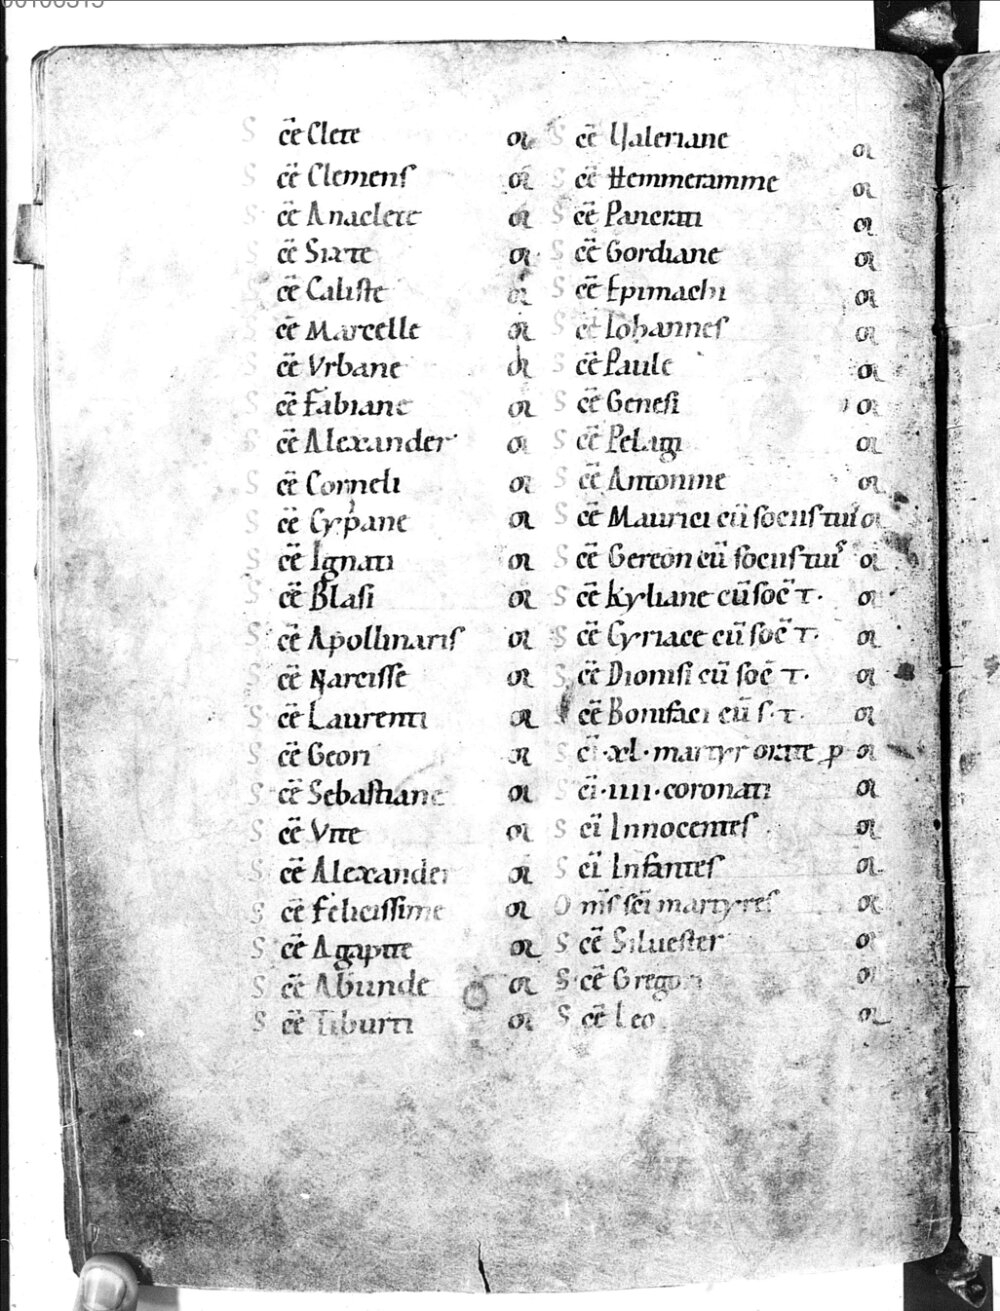 S cē Clete or
S cē Clemens or
S cē Anaclete or
S cē Sixte or
S cē Caliste or
S cē Marcelle or
S cē Vrbane or
S cē Fabiane or
S cē Alexander or
S cē Corneli or
S cē Cypriane or
S cē Ignati or
S cē Blasi or
S cē Apollinaris or
S cē Narcisse or
S cē Laurenti or
S cē Geori or
S cē Sebastiane or
S cē Vite or
S cē Alexander or
S cē Felicissime or
S cē Agapite or
S cē Abunde or
S cē Tiburti or
S cē Ualeriane or
S cē Hemmeramme or
S cē Pancrati or
S cē Gordiane or
S cē Epimachi or
S cē Iohannes or
S cē Paule or
S cē Genesi or
S cē Pelagi or
S cē Antonine or
S cē Maurici cū sociis tuis or
S cē Gereon cū sociis tuis or
S cē Kyliane cū soc̄ t. or
S cē Cyriace cū soc̄ t. or
S cē Dionisi cū soc̄ t. or
S cē Bonifaci cū s. t. or
S cī .xl. martyr orate p
S cī .IIII. coronati or
S cī Innocentes or
S cī Infantes or
O m̄s sc̄i martyres or
S cē Siluester or
S cē Gregori or
S cē Leo or